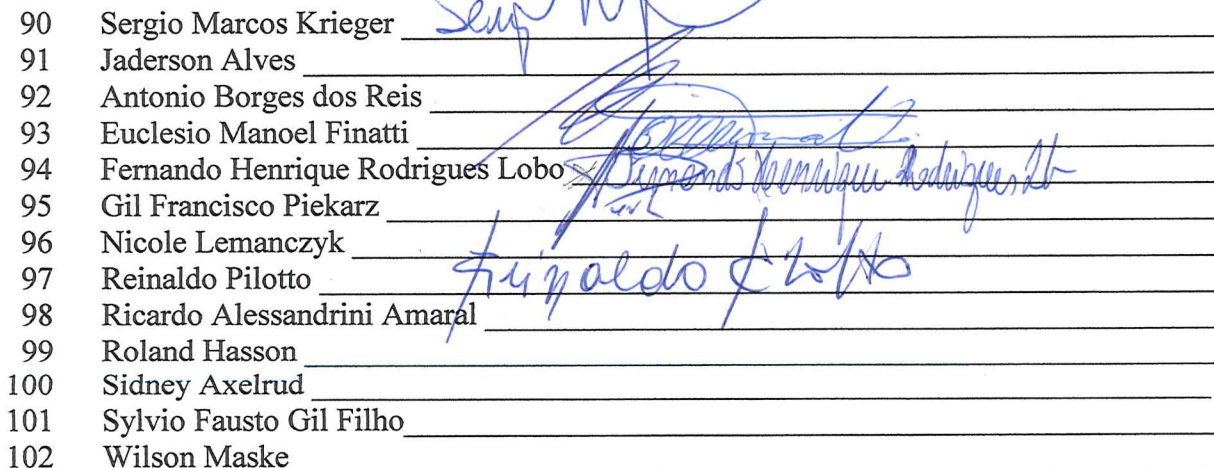 90 Sergio Marcos Krieger
91 Jaderson Alves
92 Antonio Borges dos Reis
93 Euclesio Manoel Finatti
94 Fernando Henrique Rodrigues Lobo Fernando Henrique Rodrigues Lobo
95 Gil Francisco Piekarz
96 Nicole Lemanczyk
97 Reinaldo Pilotto Reinaldo Pilotto
98 Ricardo Alessandrini Amaral
99 Roland Hasson
100 Sidney Axelrud
101 Sylvio Fausto Gil Filho
102 Wilson Maske